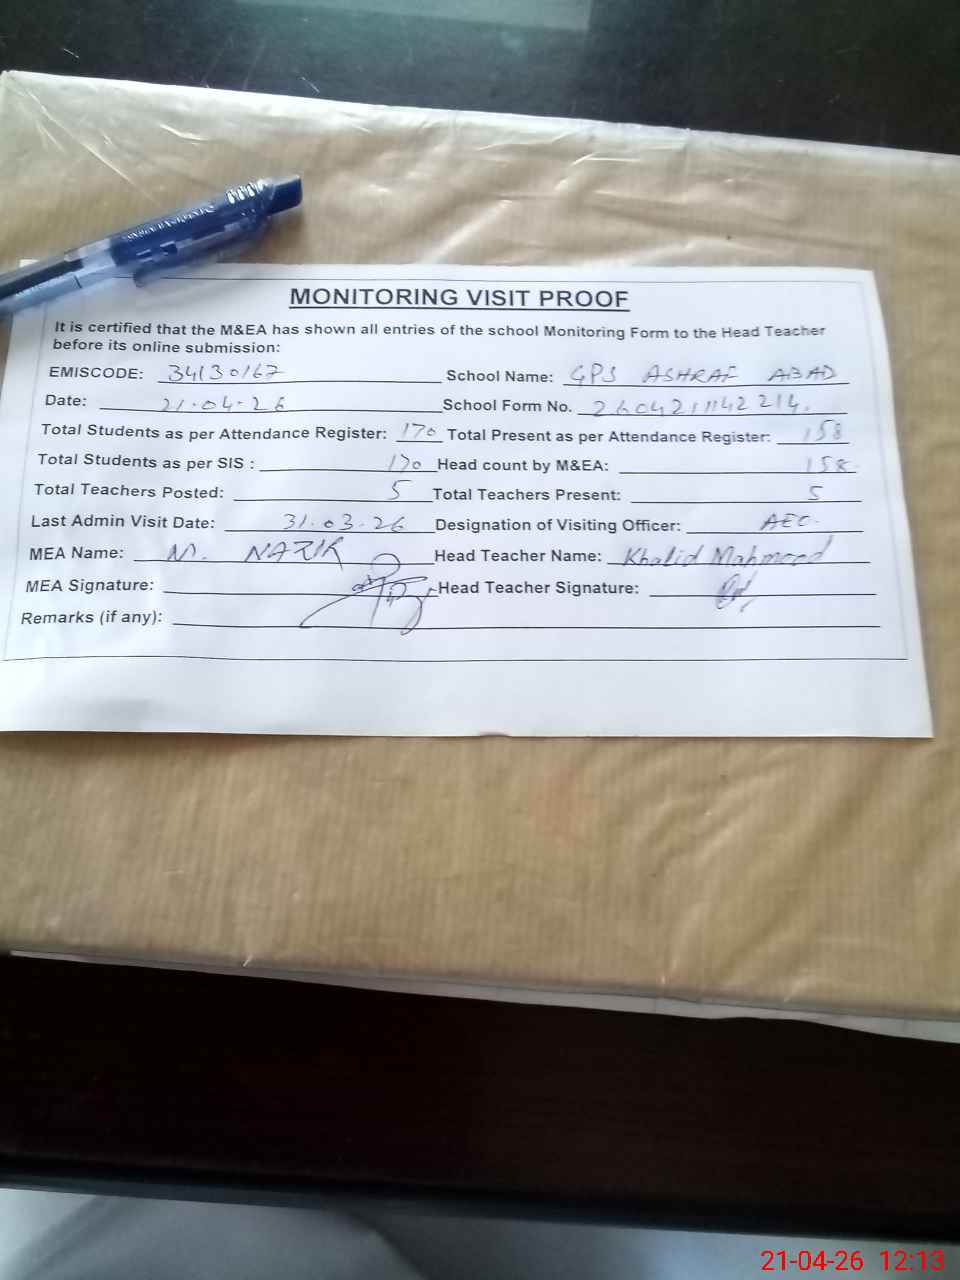 MONITORING VISIT PROOF
It is certified that the M&EA has shown all entries of the school Monitoring Form to the Head Teacher
before its online submission:
EMISCODE: 34130167 School Name: GPS ASHRAF ABAD
Date: 21.04.26 School Form No. 2604211142214.
Total Students as per Attendance Register: 170 Total Present as per Attendance Register: 158
Total Students as per SIS : 170 Head count by M&EA: 158.
Total Teachers Posted: 5 Total Teachers Present: 5
Last Admin Visit Date: 31.03.26 Designation of Visiting Officer: AEO.
MEA Name: M. NAZIR Head Teacher Name: Khalid Mahmood
MEA Signature: Head Teacher Signature:
Remarks (if any):
21-04-26 12:13